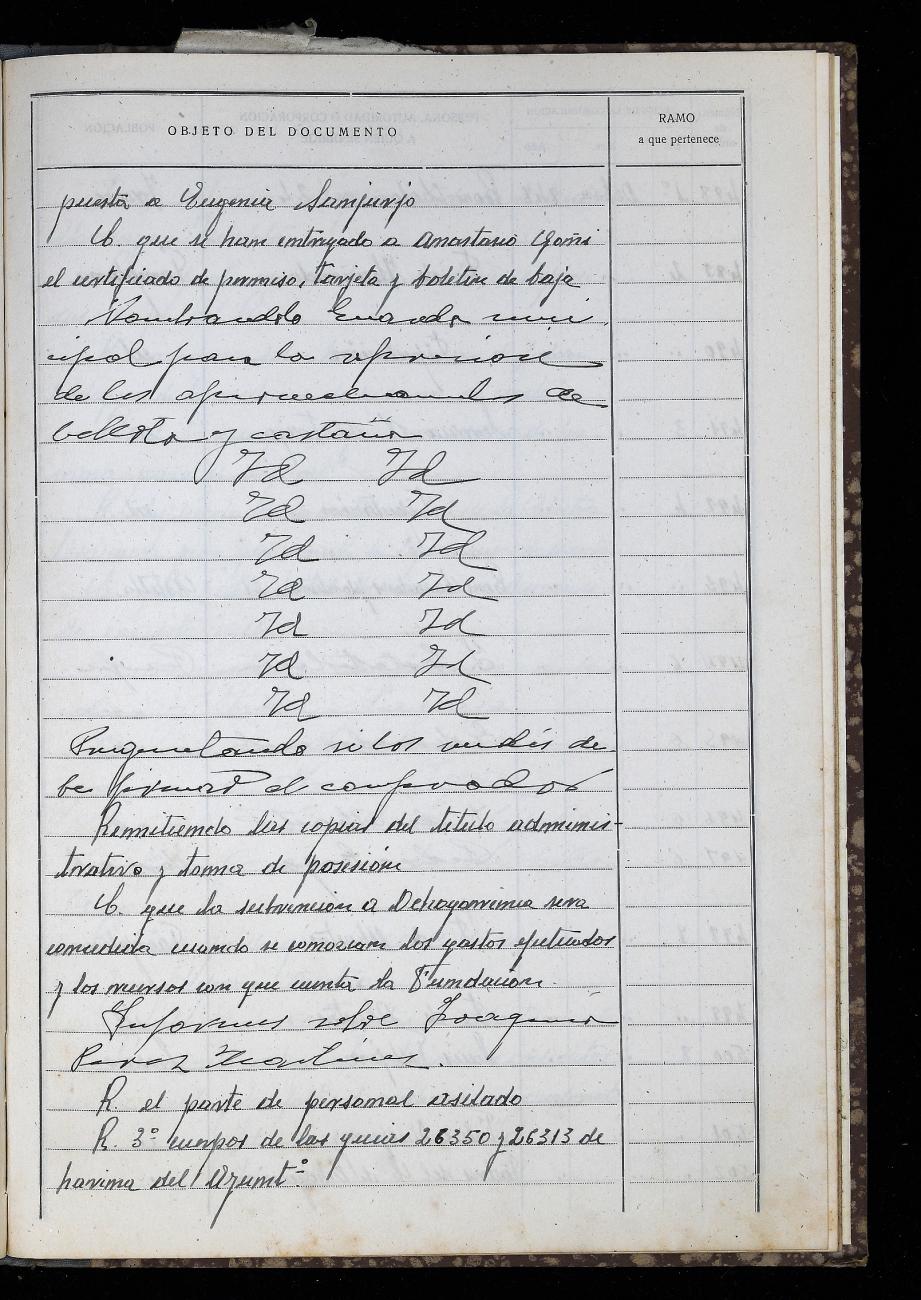 OBJETO DEL DOCUMENTO
RAMO
a que pertenece
puesta a Eugenia Sanjurjo
C. que se han entregado a Anastasio Goñi
el certificado de permiso, tarjeta y boletin de baja
Nombrandolo Guarda muni
cipal para la
de los aprovechamientos de
bellota y castaña
Id Id
Id Id
Id Id
Id Id
Id Id
Id Id
Id Id
Preguntando si los de
be firmar el comprador
Remitiendo las copias del titulo adminis-
trativo y toma de posesión
C. que la subvencion a sera
concedida cuando se conozcan los gastos efectuados
y los recursos con que cuenta la Fundación.
Informes sobre Joaquin
Perez Martinez.
R. el parte de personal asilado
R. 3º cuerpos de las guias 26350 y 26313 de
harina del Ayumtº